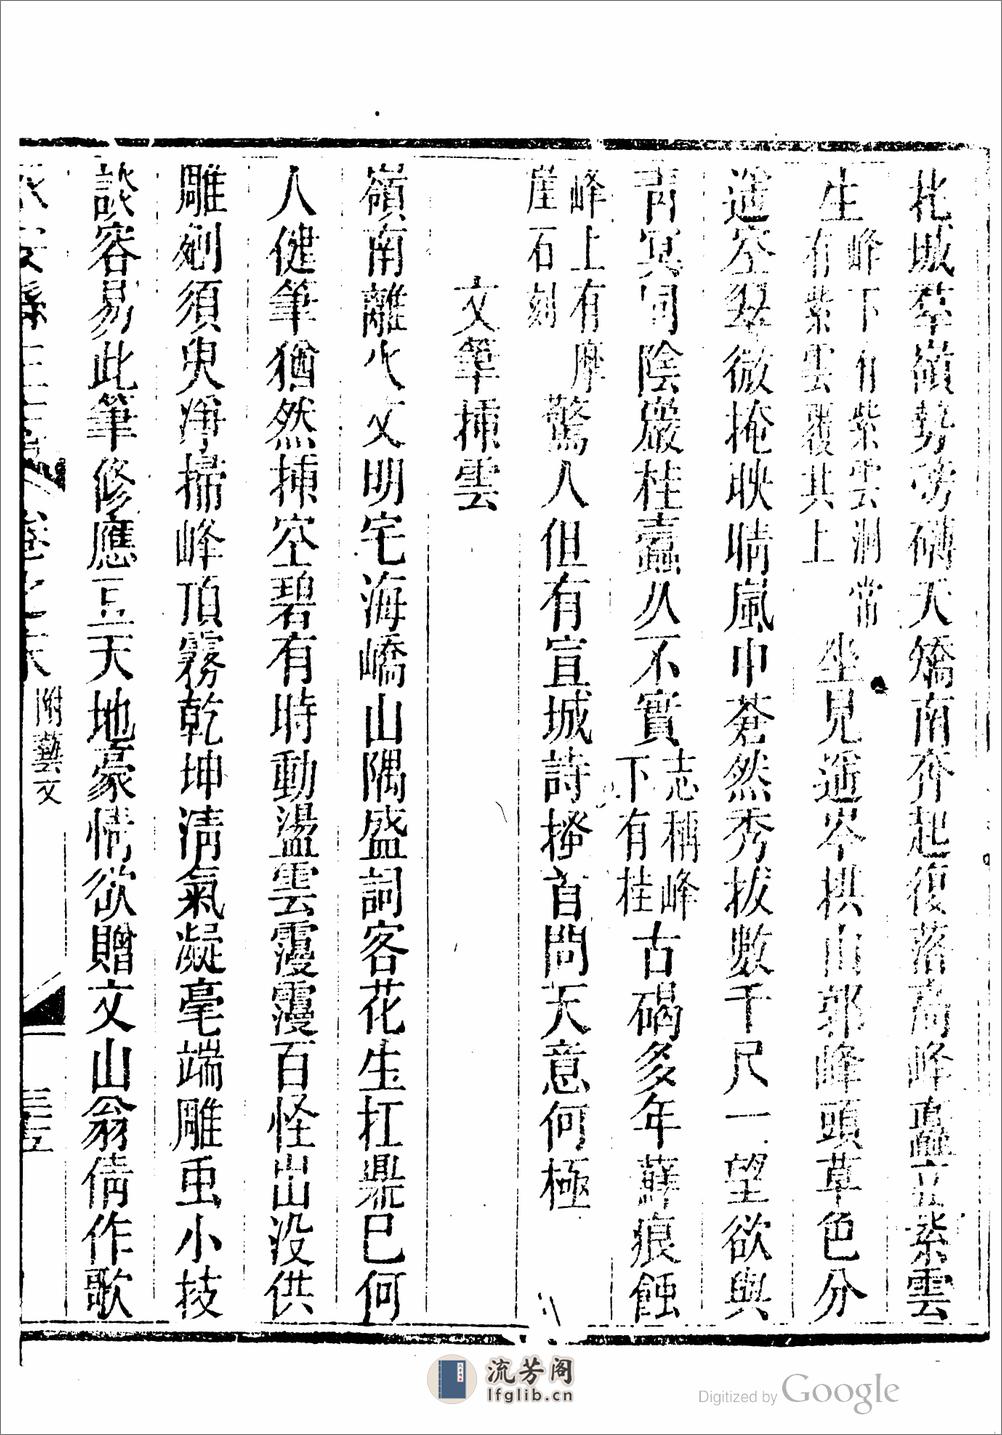 北城羣嶺勢嵱礴天矯南奔起復落高峰矗立紫雲
生峰下有紫雲洞常有紫雲覆其上坐見遥岑拱山郭峰頭草色分
遥空翠微掩映晴嵐中蒼然秀拔數千尺一望欲與
青冥同陰巖桂蠧久不實志稱峰下有桂古碣多年蘚痕蝕
峰上有摩崖石刻驚人但有宣城詩搔首問天意何極
文筆揷雲
嶺南離火文明宅海嶠山隅盛詞客花生扛鼎已何
人健筆猶然揷空碧有時動盪雲靉靉百怪出没供
雕剜須臾凈掃峰頂霧乾坤清氣凝毫端雕虫小技
談容易此筆修應亘天地豪情欲贈文山翁倩作歌
卷之末 附藝文
流芳阁
lfglib.cn
Digitized by Google